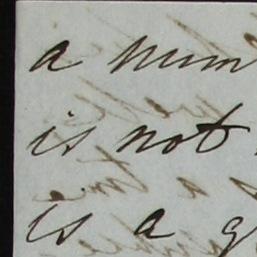 a num
is not
is a g